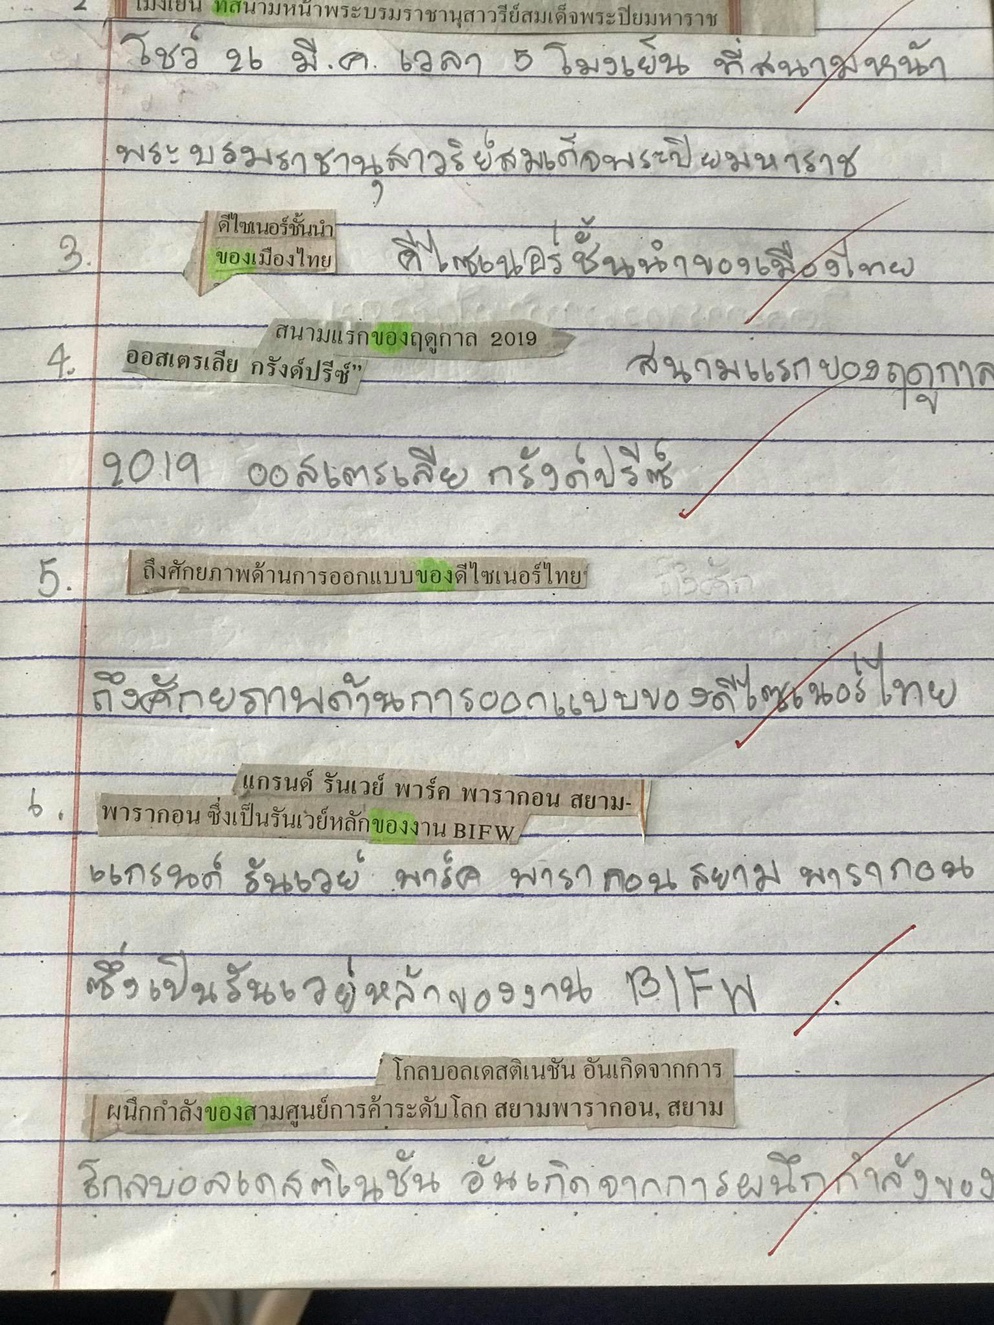 2 โมงเย็น ที่สนามหน้าพระบรมราชานุสาวรีย์สมเด็จพระปิยมหาราช
โชว์ 21 มี.ค. เวลา 5 โมงเย็น ที่สนามหน้า
พระบรมราชานุสาวรีย์สมเด็จพระปิยมหาราช
ดีไซเนอร์ชั้นนำ
3. ของเมืองไทย ดีไซเนอร์ชั้นนำของเมืองไทย
สนามแรกของฤดูกาล 2019
4. ออสเตรเลีย กรังด์ปรีซ์” สนามแรกของฤดูกาล
2019 ออสเตรเลีย กรังด์ปรีซ์
5. ถึงศักยภาพด้านการออกแบบของดีไซเนอร์ไทย ถึงศัก
ถึงศักยภาพด้านการออกแบบของดีไซเนอร์ไทย
แกรนด์ รันเวย์ พาร์ค พารากอน สยาม-
6. พารากอน ซึ่งเป็นรันเวย์หลักของงาน BIFW
แกรนด์ รันเวย์ พาร์ค พารากอน สยาม พารากอน
ซึ่งเป็นรันเวย์หลักของงาน BIFW
โกลบอลเดสติเนชัน อันเกิดจากการ
ผนึกกำลังของสามศูนย์การค้าระดับโลก สยามพารากอน, สยาม
โกลบอลเดสติเนชัน อันเกิดจากการผนึกกำลังของ